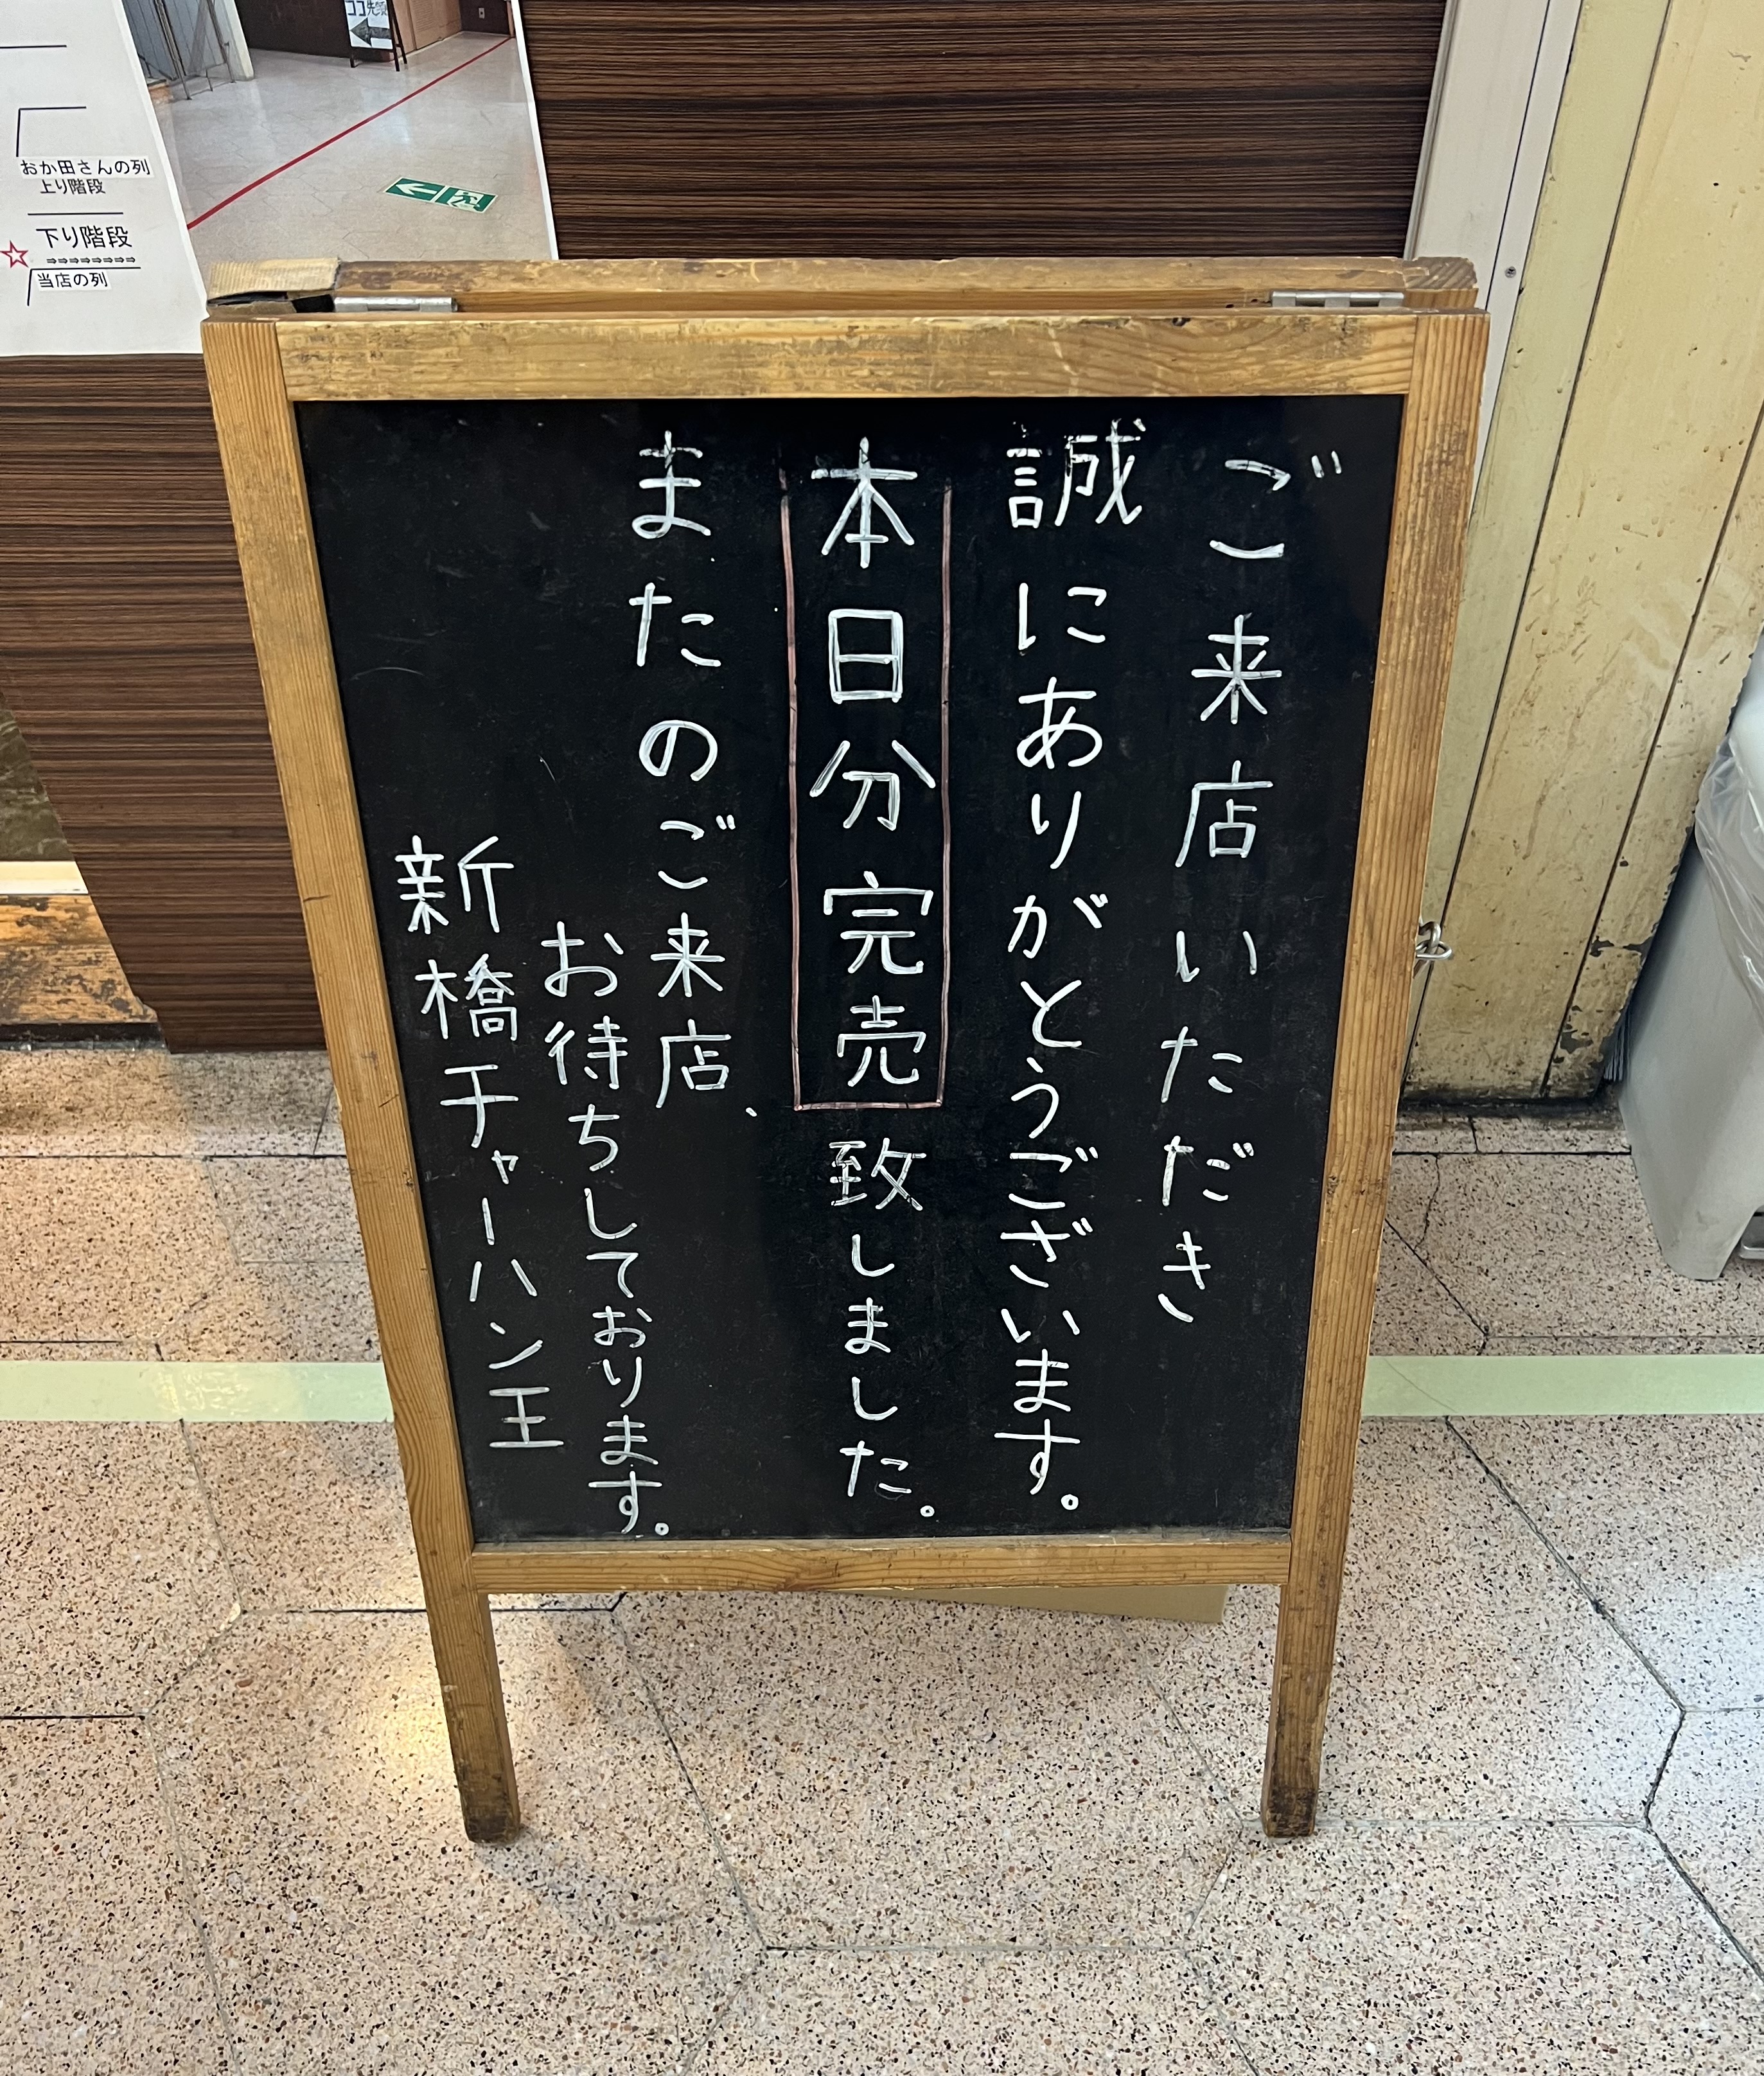 ココ先頭
おか田さんの列
上り階段
下り階段
☆
⇨⇨⇨⇨⇨⇨⇨⇨
当店の列
ご来店いただき
誠にありがとうございます。
本日分完売致しました。
またのご来店、
お待ちしております。
新橋チャーハン王